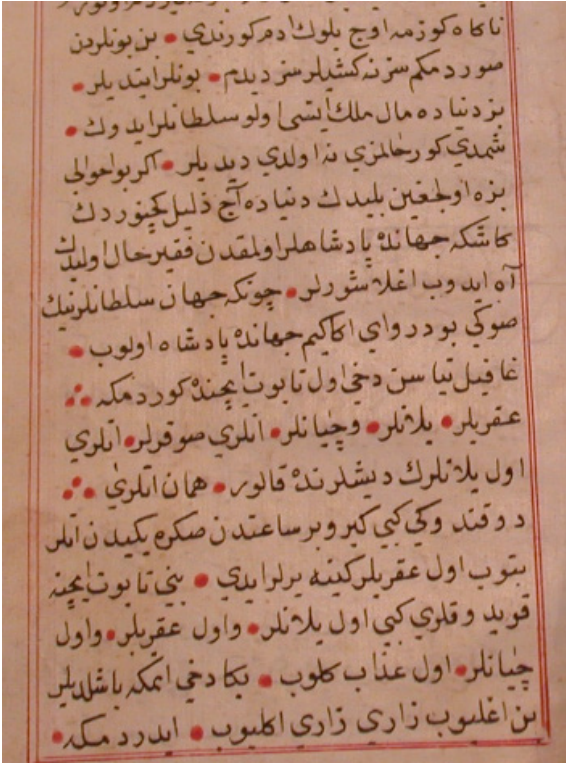 ناكاه كوزمه اوج بلوك ادم كورندي • بن بونلردن
صوردمكم سز نه كشيلرسز ديدم • بونلر ايتديلر •
بز دنياده مال ملك ايسى اولو سلطانلر ايدوك •
شمدي كور حالمزي نه اولدي ديديلر • اكر بو احوالى
بزه اولجغين بليدك دنياده آج ذليل كچنوردك
كاشكه جهانده پادشاهلر اولمقدن فقير حال اوليدك
آه ايدوب اغلاشورلر • چونكه جهان سلطانلرنيك
صوكى بودر واى اكاكيم جهانده پادشاه اولوب •
غافيل تياسن دخى اول تابوت ايچنده كوردمكه ∴
عقربلر • يلانلر • وچيانلر • انلري صوقرلر • انلري
اول يلانلرك ديشلرنده قالور • همان انلري ∴
دوقندوكي كبي كيرو بر ساعتدن صكره يكيدن انلر
بتوب اول عقربلر كينه يرلر ايدي • بني تابوت ايچنه
قويدوقلري كبي اول يلانلر • واول عقربلر • واول
چيانلر • اول عذاب كلوب • بكا دخي ايتمكه باشلديلر
بن اغليوب زاري زاري اكليوب • ايدردمكه •